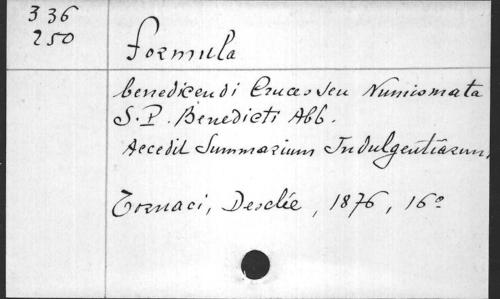 336
250
Formula
benedicendi Cruces seu Numismata
S. P. Benedicti Abb.
Accedit Summarium Indulgentiarum,
Tornaci, Desclée, 1876, 16º